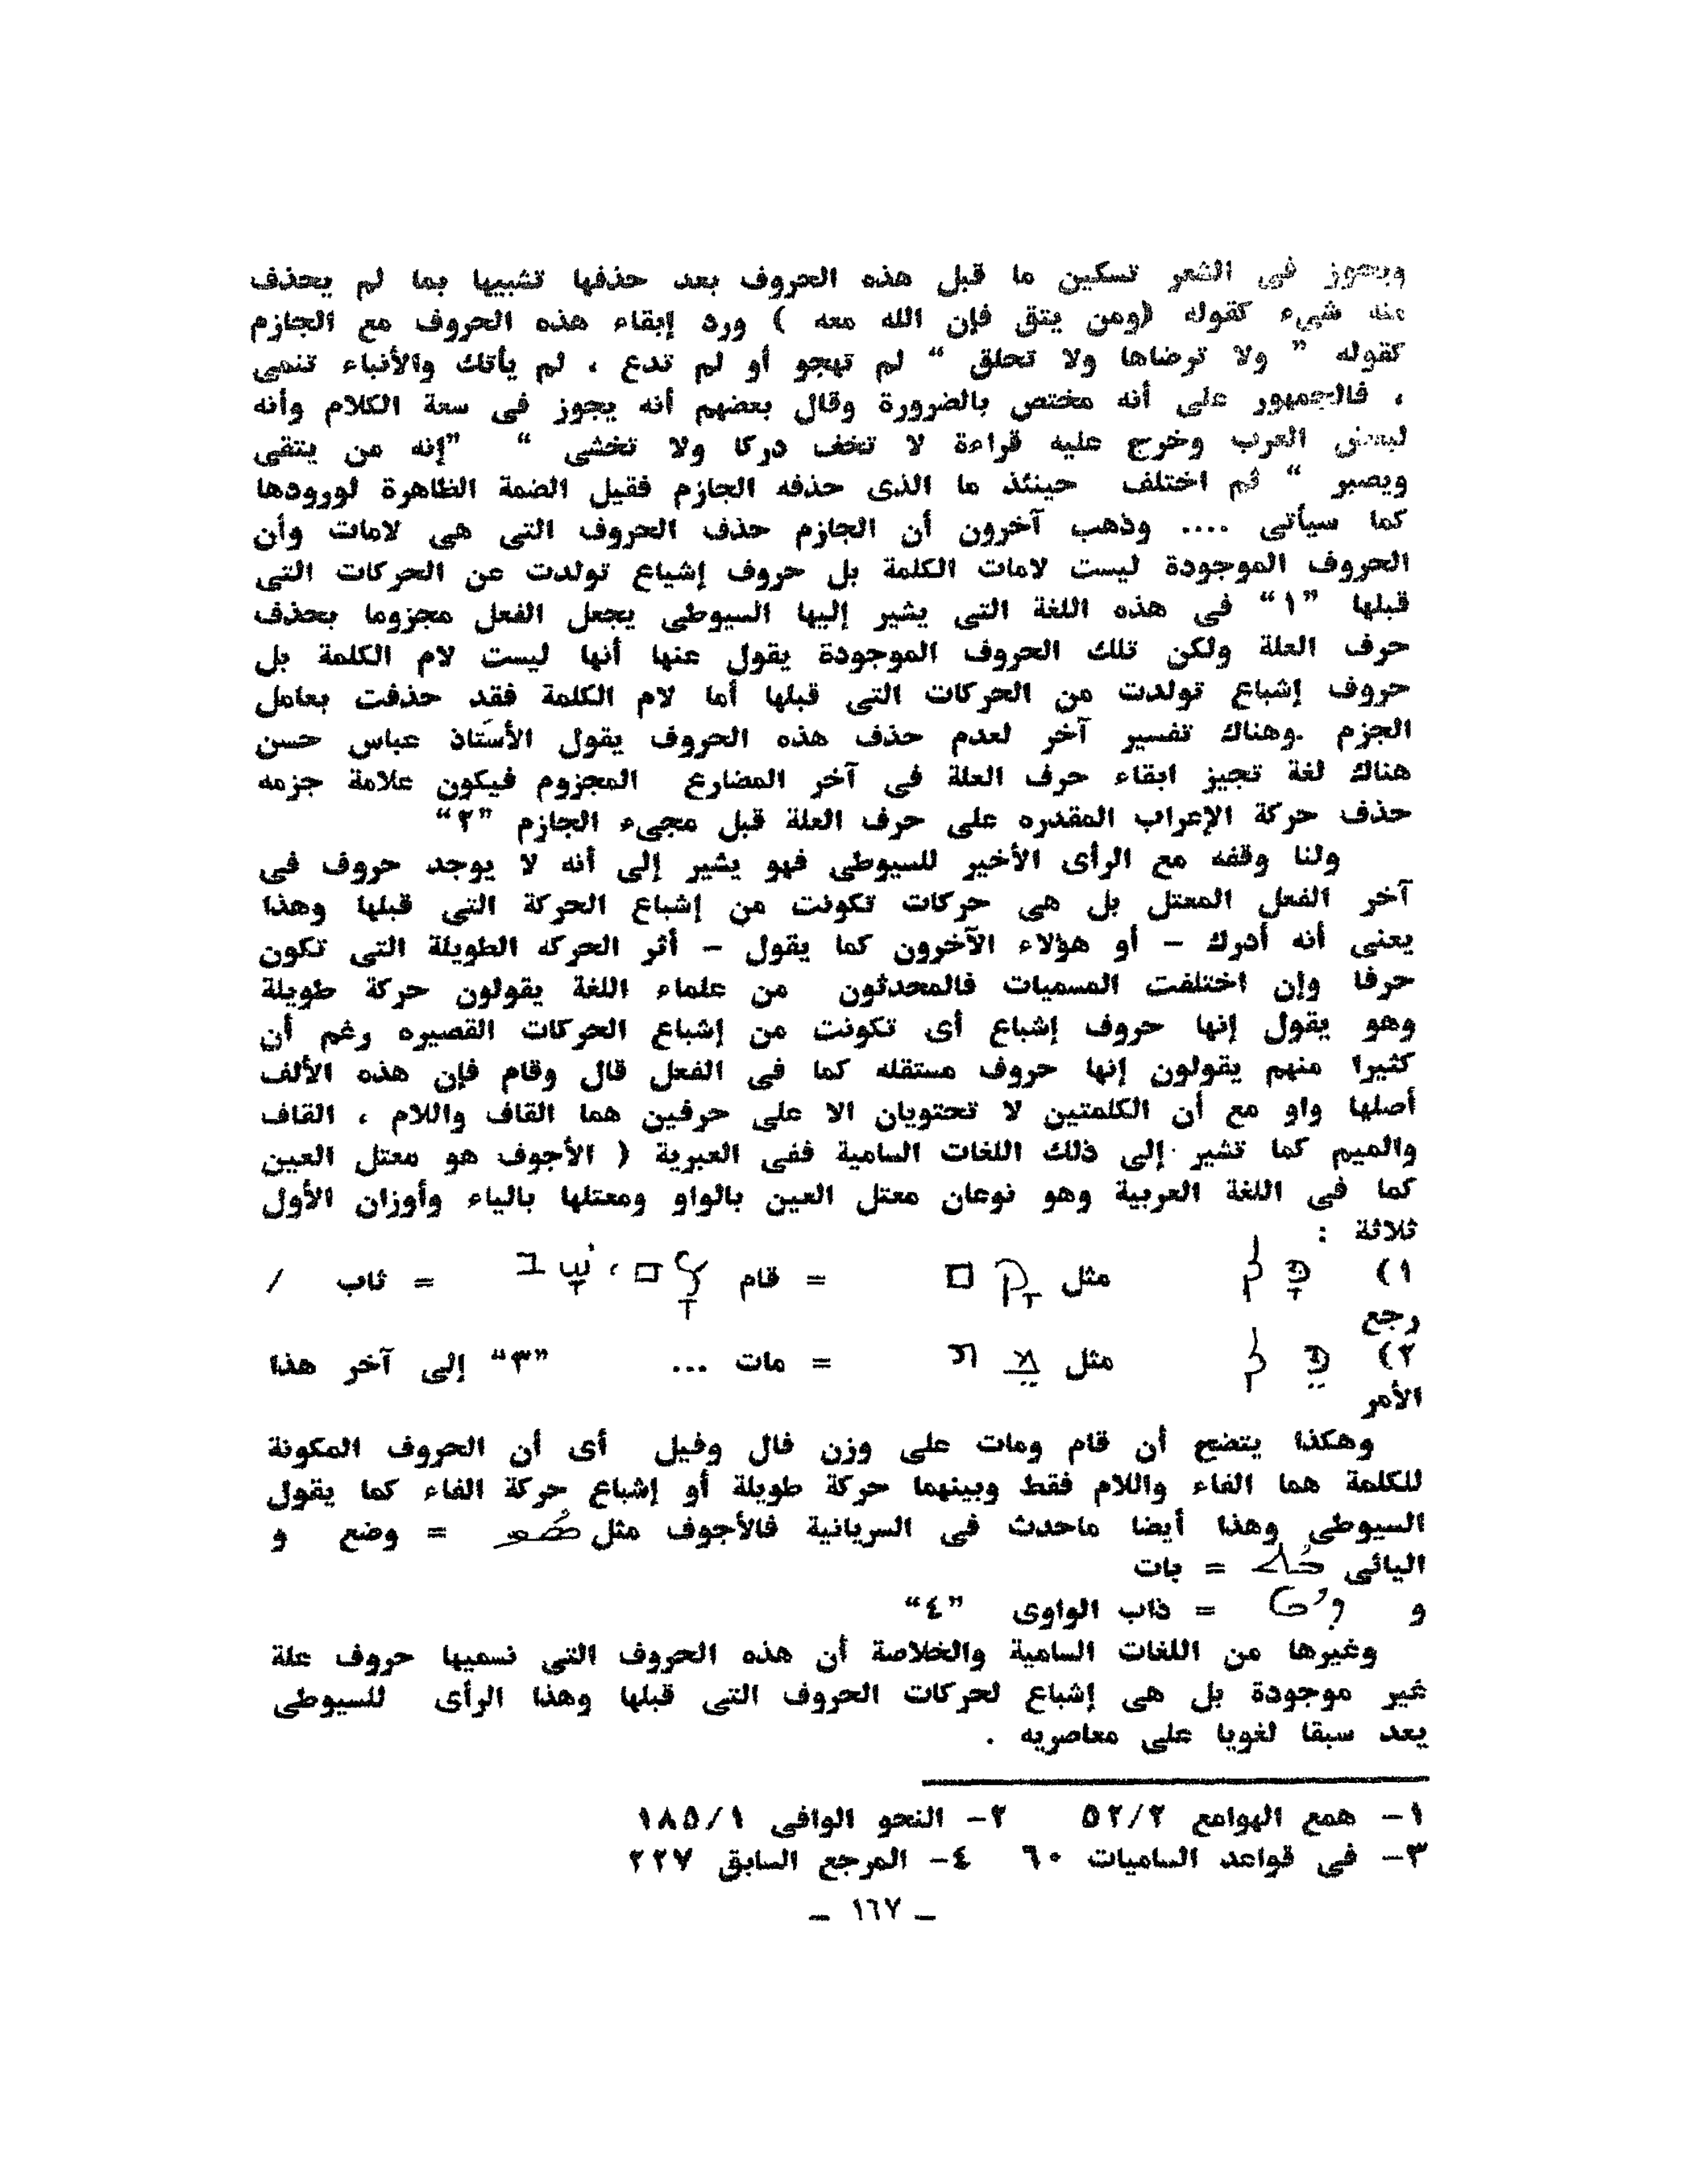 ويجوز فى الشعر تسكين ما قبل هذه الحروف بعد حذفها تشبيها بما لم يحذف
منه شيء كقوله (ومن يتق فإن الله معه ) ورد إبقاء هذه الحروف مع الجازم
كقوله ” ولا ترضاها ولا تحلق “ لم تهجو أو لم تدع ، لم يأتك والأنباء تنمى
، فالجمهور على أنه مختص بالضرورة وقال بعضهم أنه يجوز فى سعة الكلام وأنه
لبعض العرب وخرج عليه قراءة لا تخف دركا ولا تخشى “ ”إنه من يتقى
ويصبر “ ثم اختلف حينئذ ما الذى حذفه الجازم فقيل الضمة الظاهرة لورودها
كما سيأتى .... وذهب آخرون أن الجازم حذف الحروف التى هى لامات وأن
الحروف الموجودة ليست لامات الكلمة بل حروف إشياع تولدت عن الحركات التى
قبلها ”١“ فى هذه اللغة التى يشير إليها السيوطى يجعل الفعل مجزوما بحذف
حرف العلة ولكن تلك الحروف الموجودة يقول عنها أنها ليست لام الكلمة بل
حروف إشباع تولدت من الحركات التى قبلها أما لام الكلمة فقد حذفت بعامل
الجزم .وهناك تفسير آخر لعدم حذف هذه الحروف يقول الأستاذ عباس حسن
هناك لغة تجيز ابقاء حرف العلة فى آخر المضارع المجزوم فيكون علامة جزمه
حذف حركة الإعراب المقدره على حرف العلة قبل مجىء الجازم ”٢“
ولنا وقفه مع الرأى الأخير للسيوطى فهو يشير إلى أنه لا يوجد حروف فى
آخر الفعل المعتل بل هى حركات تكونت من إشباع الحركة التى قبلها وهذا
يعنى أنه أدرك – أو هؤلاء الآخرون كما يقول – أثر الحركه الطويلة التى تكون
حرفا وإن اختلفت المسميات فالمحدثون من علماء اللغة يقولون حركة طويلة
وهو يقول إنها حروف إشباع أى تكونت من إشباع الحركات القصيره رغم أن
كثيرا منهم يقولون إنها حروف مستقله كما فى الفعل قال وقام فإن هذه الألف
أصلها واو مع أن الكلمتين لا تحتويان الا على حرفين هما القاف واللام ، القاف
والميم كما تشير إلى ذلك اللغات السامية ففى العبرية ( الأجوف هو معتل العين
كما فى اللغة العربية وهو نوعان معتل العين بالواو ومعتلها بالياء وأوزان الأول
ثلاثة :
١) פָל مثل קָם = قام ، שָׁב = ثاب /
رجع
٢) פֵל مثل מֵת = مات ... ”٣“ إلى آخر هذا
الأمر
وهكذا يتضح أن قام ومات على وزن فال وفيل أى أن الحروف المكونة
للكلمة هما الفاء واللام فقط وبينهما حركة طويلة أو إشباع حركة الفاء كما يقول
السيوطى وهذا أيضا ماحدث فى السريانية فالأجوف مثل = وضع و
اليائى = بات
و = ذاب الواوى ”٤“
وغيرها من اللغات السامية والخلاصة أن هذه الحروف التى نسميها حروف علة
غير موجودة بل هى إشباع لحركات الحروف التى قبلها وهذا الرأى للسيوطى
يعد سبقا لغويا على معاصريه .
١– همع الهوامع ٥٢/٢ ٢– النحو الوافى ١٨٥/١
٣– فى قواعد الساميات ٦٠ ٤– المرجع السابق ٢٢٧
– ١٦٧ –